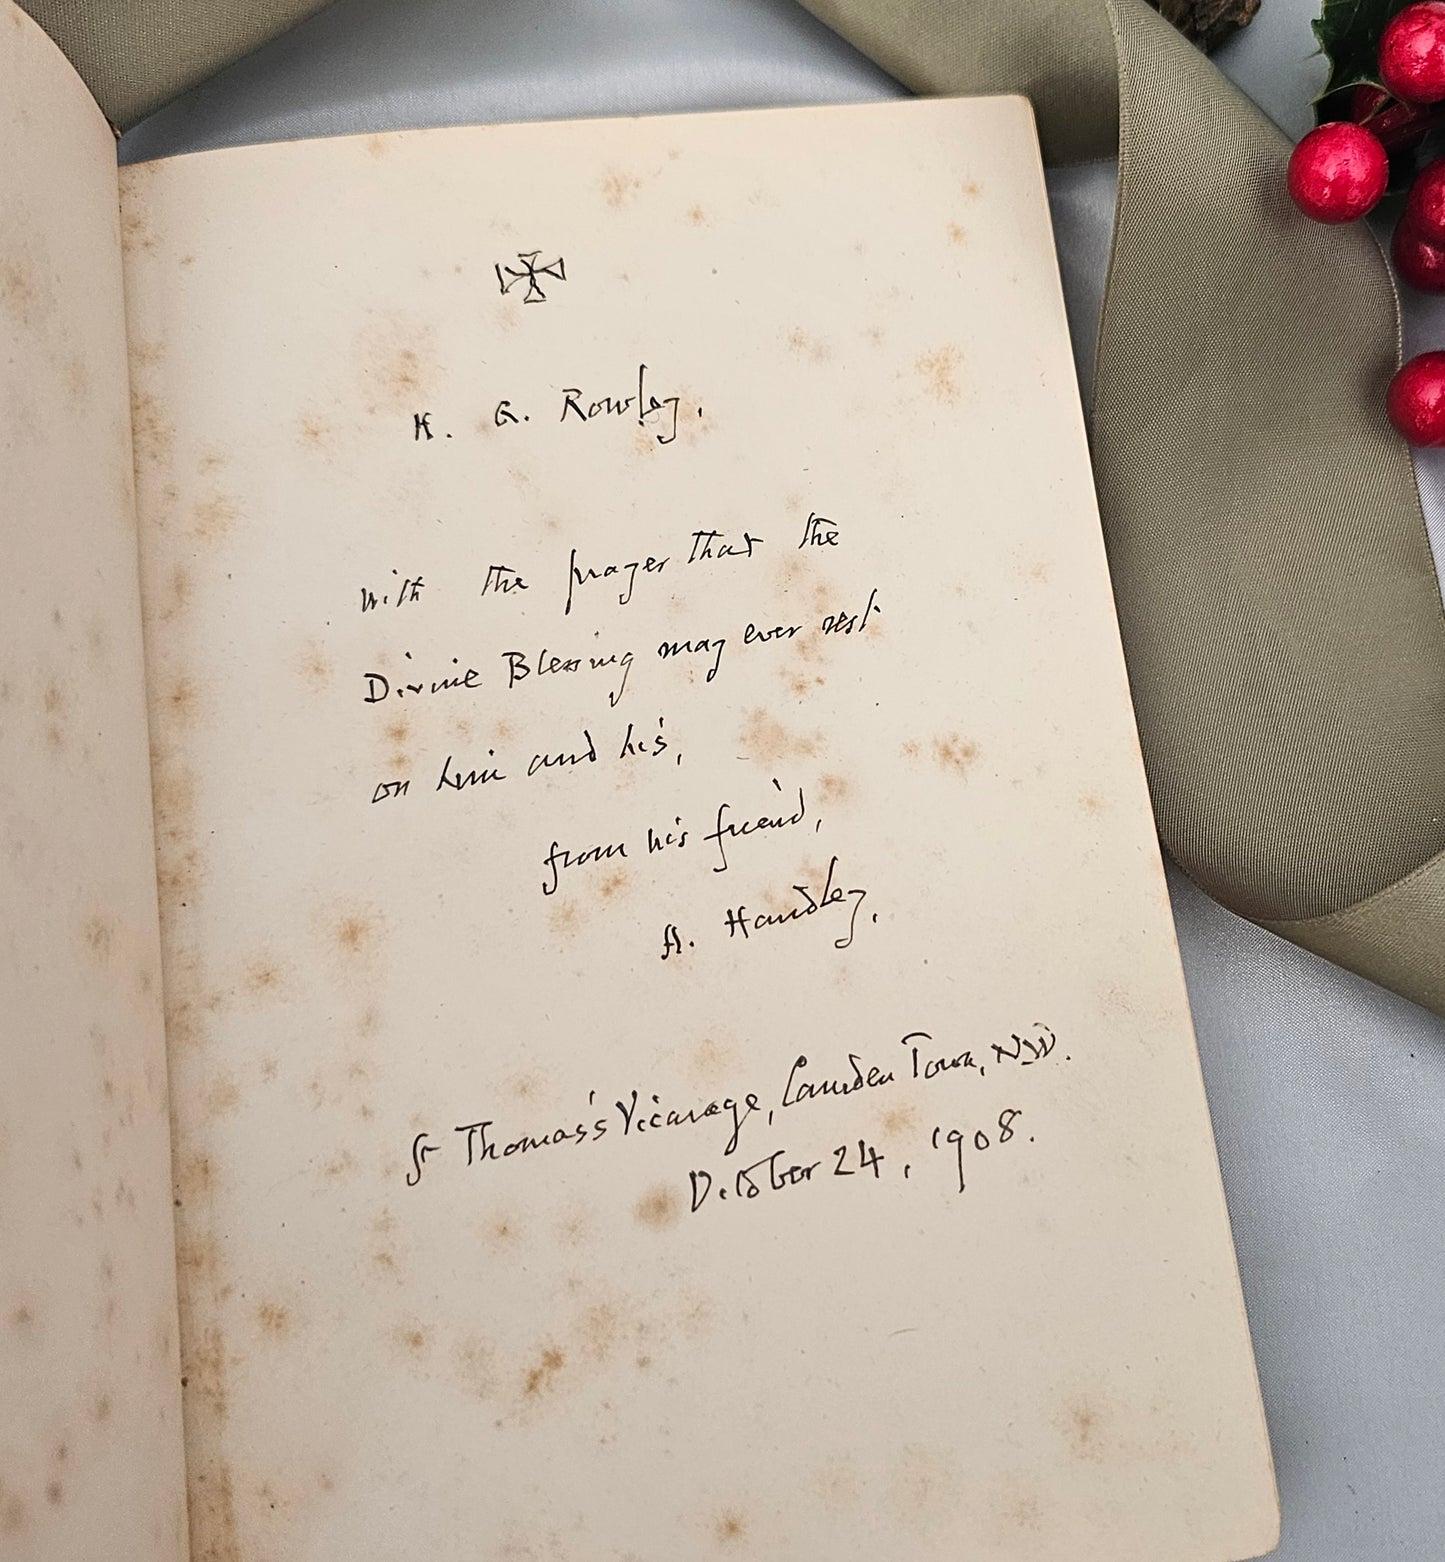 H. G. Rowley,
with the prayer that the
Divine Blessing may ever rest
on him and his,
from his friend,
A. Handley,
St Thomas's Vicarage, Camden Town, NW.
October 24, 1908.